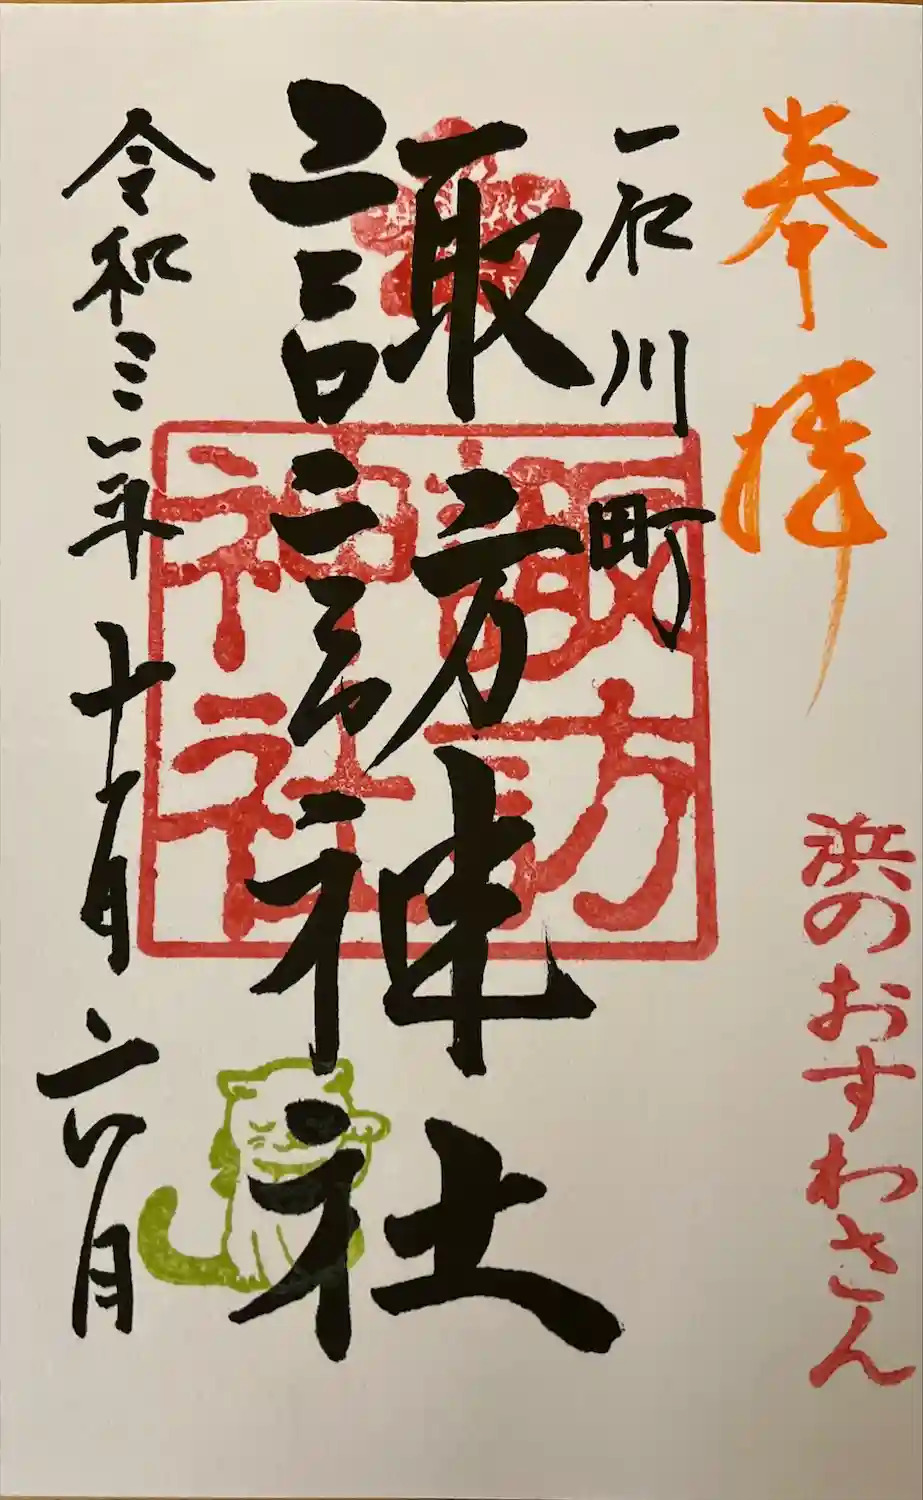 奉拝
浜のおすわさん
石川町
諏訪神社
諏訪
神社
令和三年十一月六日